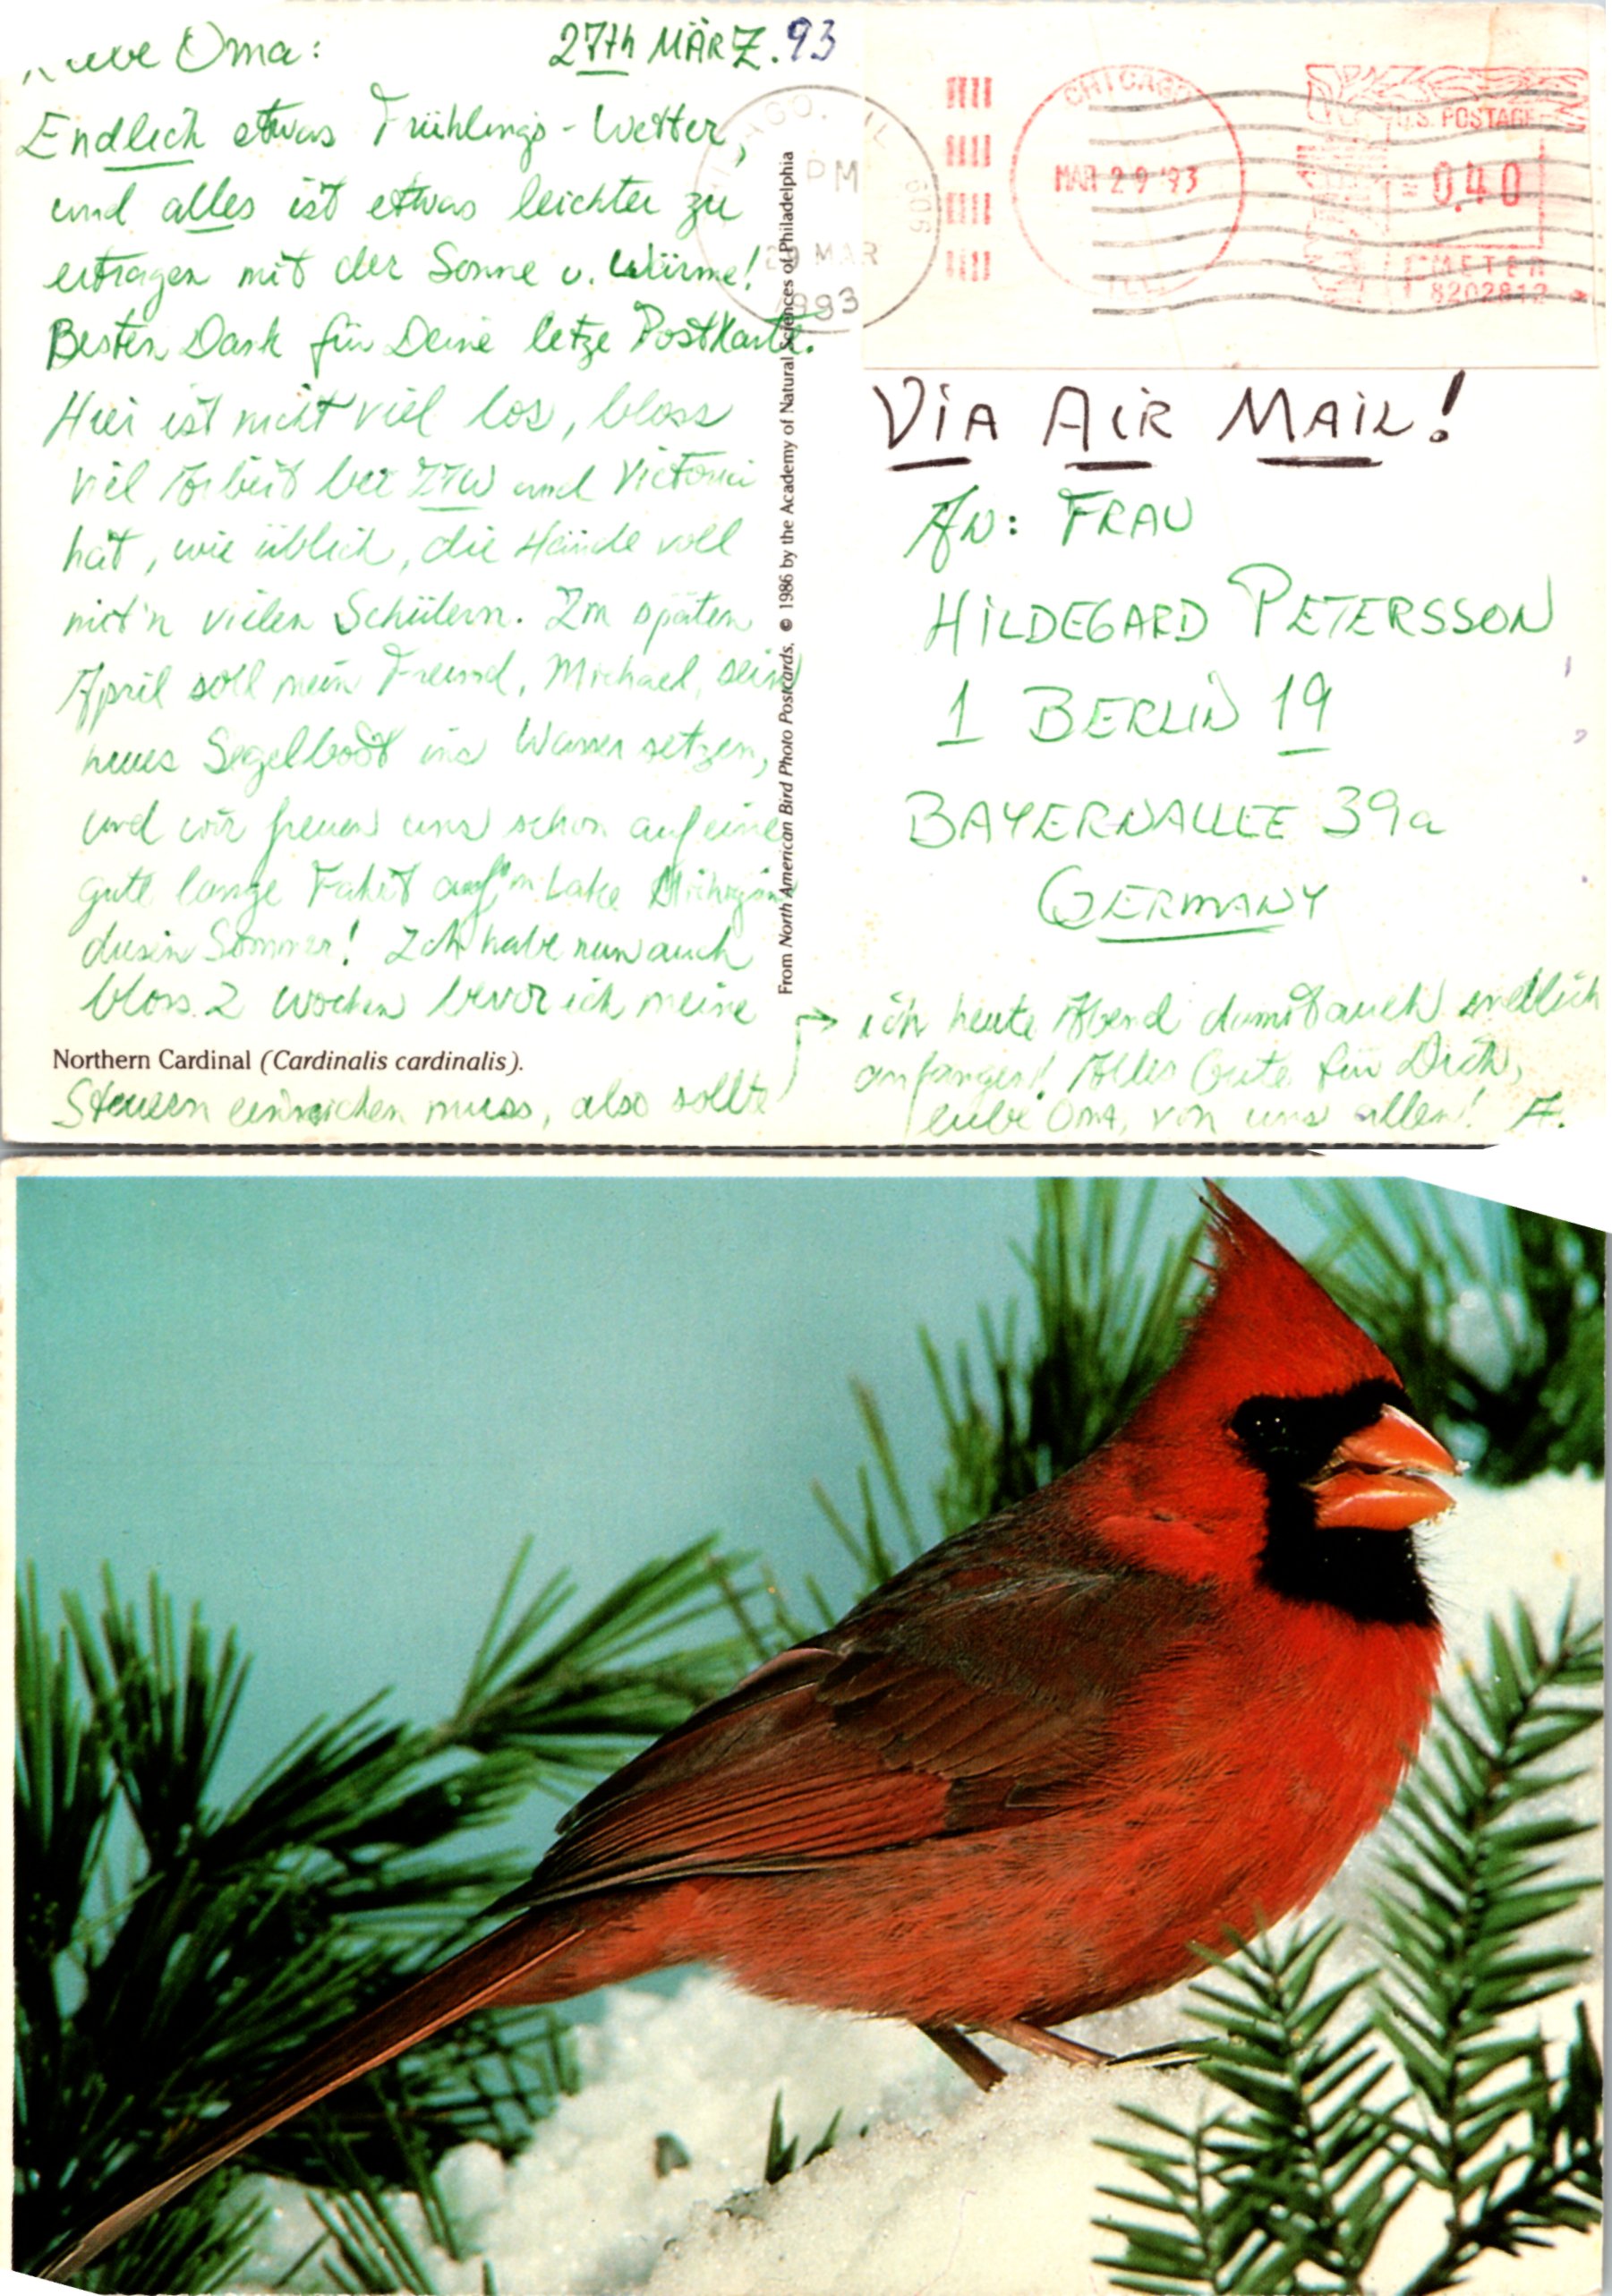 Liebe Oma:
27th MÄRZ. 93
Endlich etwas Frühlings-Wetter,
und alles ist etwas leichter zu
ertragen mit der Sonne u. Wärme!
Besten Dank für Deine letze Postkarte.
Hier ist nicht viel los, bloss
viel Arbeit bei ITW und Victoria
hat, wie üblich, die Hände voll
mit'n vielen Schülern. Im späten
April soll mein Freund, Michael, sein
neues Segelboot ins Wasser setzen,
und wir freuen uns schon auf eine
gute lange Fahrt auf'm Lake Michigan
diesen Sommer! Ich habe nun auch
bloss 2 Wochen bevor ich meine
Northern Cardinal (Cardinalis cardinalis).
Steuern einreichen muss, also sollte
From North American Bird Photo Postcards, © 1986 by the Academy of Natural Sciences of Philadelphia
IL
PM
606
29 MAR
1993
CHICAGO
MAR 29 '93
ILL.
U.S. POSTAGE
0.40
METER
8202812
VIA AIR MAIL!
AN: FRAU
HILDEGARD PETERSSON
1 BERLIN 19
BAYERNALLEE 39a
GERMANY
ich heute Abend damit auch endlich
anfangen! Alles Gute für Dich,
liebe Oma, von uns allen! A.